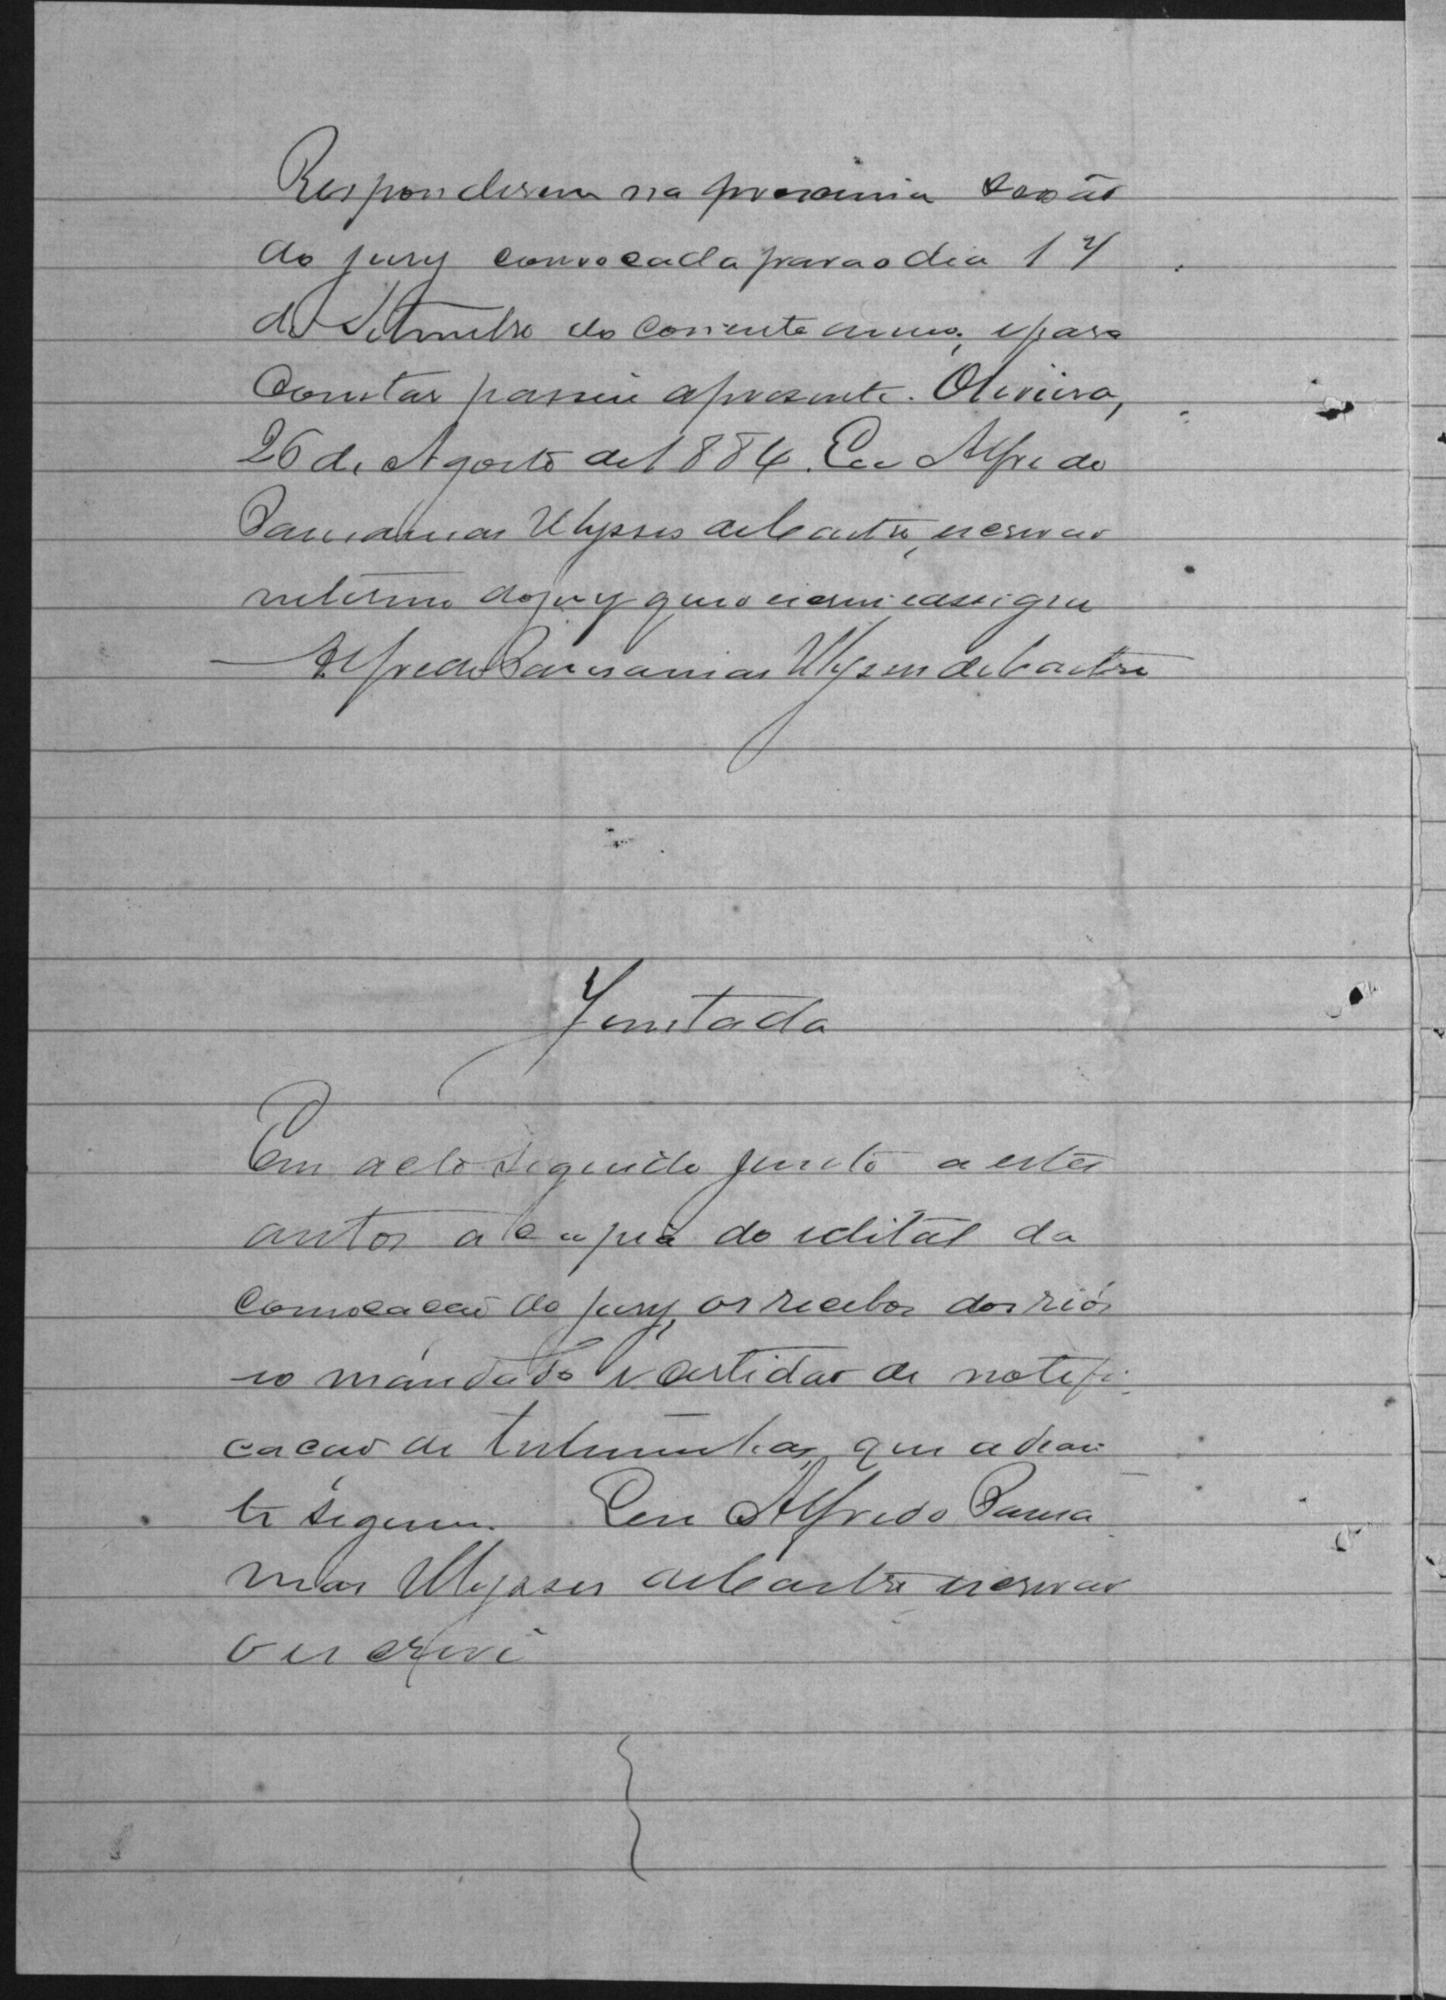 Responderem na proxima sessão
do jury convocada para o dia 17
de Setembro do corrente anno, e para
Constar passei a presente. Oliveira,
26 de Agosto de 1884. Eu Alfredo
Pausanias Ulysses de Castro, escrivao
interino do jury que o escrevi e assigno
Alfredo Pausanias Ulysses de Castro
Juntada
Em acto seguido junto a estes
autos a copia do edital da
convocacão do jury, os recebos dos réos
e o mandado e certidao de notifi-
cacao de testemunhas, que adean-
te seguem. Eu Alfredo Pausa
nias Ulysses de Castro, escrivao
o escrevi